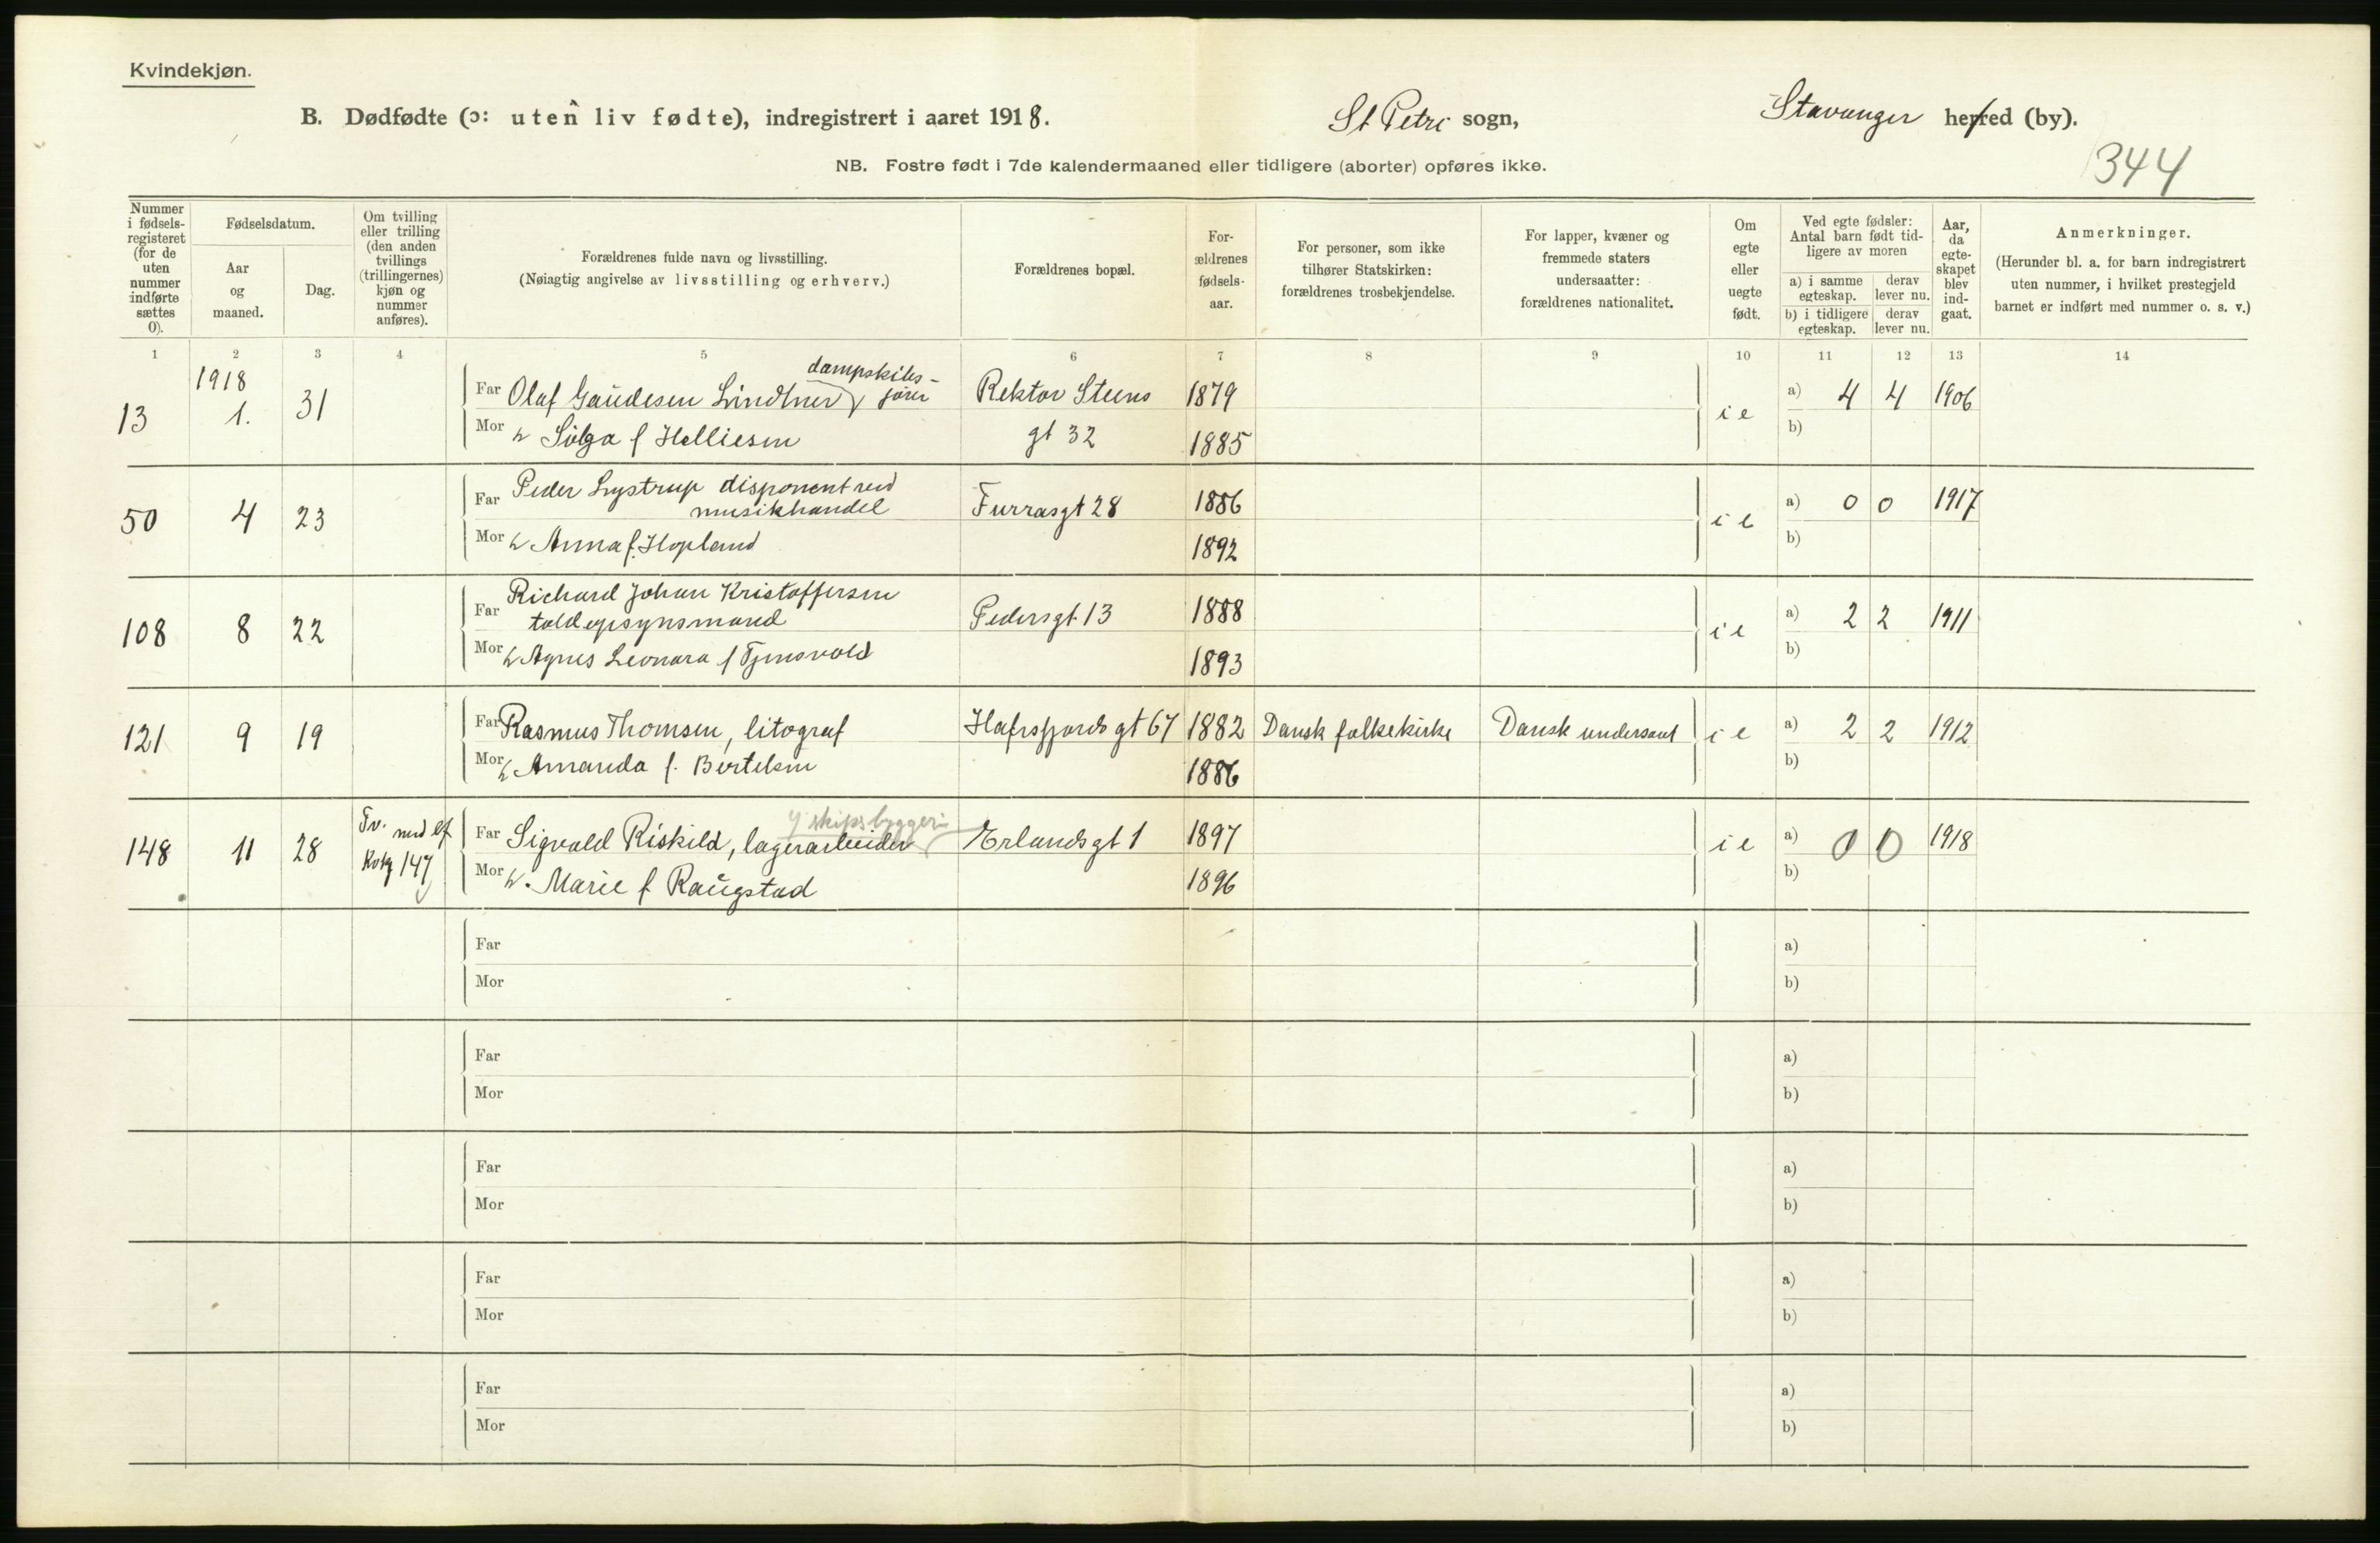 Kvindekjøn.
B. Dødfødte (ɔ: uten liv fødte), indregistrert i aaret 1918.
St Petri sogn,
Stavanger herred (by).
344
NB. Fostre født i 7de kalendermaaned eller tidligere (aborter) opføres ikke.
Nummer i fødsels-registeret (for de uten nummer indførte sættes 0).
Fødselsdatum.
Aar og maaned.
Dag.
Om tvilling eller trilling (den anden tvillings (trillingernes) kjøn og nummer anføres).
Forældrenes fulde navn og livsstilling.
(Nøiagtig angivelse av livsstilling og erhverv.)
Forældrenes bopæl.
For-ældrenes fødsels-aar.
For personer, som ikke tilhører Statskirken: forældrenes trosbekjendelse.
For lapper, kvæner og fremmede staters undersaatter: forældrenes nationalitet.
Om egte eller uegte født.
Ved egte fødsler: Antal barn født tid-ligere av moren
a) i samme egteskap. derav lever nu.
b) i tidligere egteskap. derav lever nu.
Aar, da egte-skapet blev ind-gaat.
Anmerkninger.
(Herunder bl. a. for barn indregistrert uten nummer, i hvilket prestegjeld barnet er indført med nummer o. s. v.)
1 2 3 4 5 6 7 8 9 10 11 12 13 14
1918
dampskibs-
13 1. 31 Far Olaf Gaudesen Lindtner fører Rektor Steens 1879 i e a) 4 4 1906
Mor h Solga f Helliesen gt 32 1885 b)
50 4 23 Far Peder Lystrup disponent ved
musikhandel Furrasgt 28 1886 i e a) 0 0 1917
Mor h Anna f. Hopland 1892 b)
108 8 22 Far Richard Johan Kristoffersen
toldopsynsmand Pedersgt 13 1888 i e a) 2 2 1911
Mor h Agnes Leonara f Tjensvold 1893 b)
121 9 19 Far Rasmus Thomsen, litograf Hafrsfjords gt 67 1882 Dansk folkekirke Dansk undersaat i e a) 2 2 1912
Mor h Amanda f. Bertelsen 1886 b)
Tv. med lf
skipsbyggeri
148 11 28 147 Far Sigvald Riskild, lagerarbeider Erlandsgt 1 1897 i e a) 0 0 1918
Mor h. Marie f Raugstad 1896 b)
Far a)
Mor b)
Far a)
Mor b)
Far a)
Mor b)
Far a)
Mor b)
Far a)
Mor b)